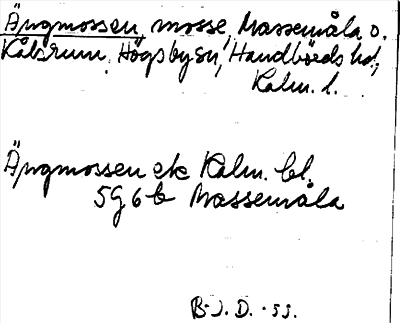 Ängmossen, mosse, Massemåla o.
Kåksrum, Högsby sn, Handbörds hd,
Kalm. l.
Ängmossen ek Kalm. bl.
5G 6b Massemåla
B. J. D. - 53.